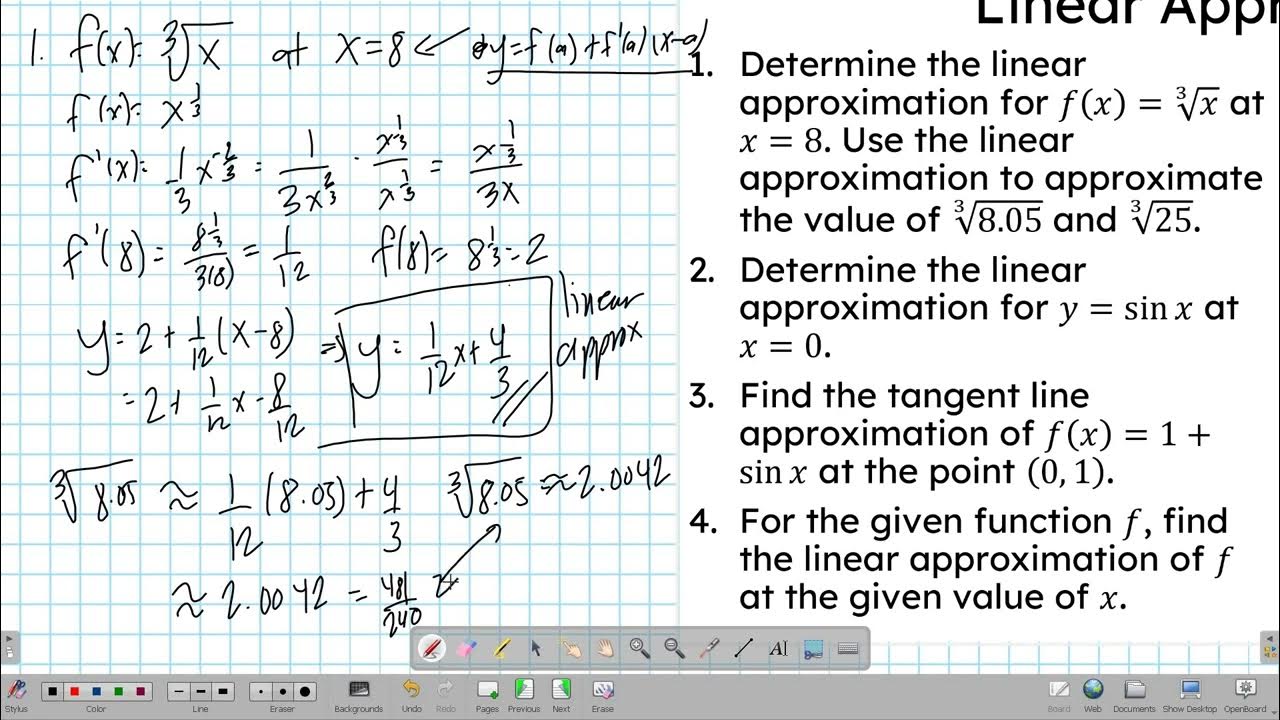 1. f(x)= ∛x at x=8 ← y=f(a)+f'(a)(x-a)
f(x)= x^(1/3)
f'(x)= 1/3 x^(-2/3) = 1/(3x^(2/3)) · x^(1/3)/x^(1/3) = x^(1/3)/3x
f'(8)= 8^(1/3)/3(8) = 1/12 f(8)= 8^(1/3)=2
y= 2+ 1/12(x-8) ⇒ y= 1/12 x+ 4/3 linear approx
= 2+ 1/12 x - 8/12
∛8.05 ≈ 1/12 (8.05)+ 4/3 ∛8.05 ≈ 2.0042
≈ 2.0042 = 481/240
Linear Appr
1. Determine the linear
approximation for f(x) = ∛x at
x = 8. Use the linear
approximation to approximate
the value of ∛8.05 and ∛25.
2. Determine the linear
approximation for y = sin x at
x = 0.
3. Find the tangent line
approximation of f(x) = 1 +
sin x at the point (0, 1).
4. For the given function f, find
the linear approximation of f
at the given value of x.
AI
Stylus Color Line Eraser Backgrounds Undo Redo Pages Previous Next Erase Board Web Documents Show Desktop OpenBoard